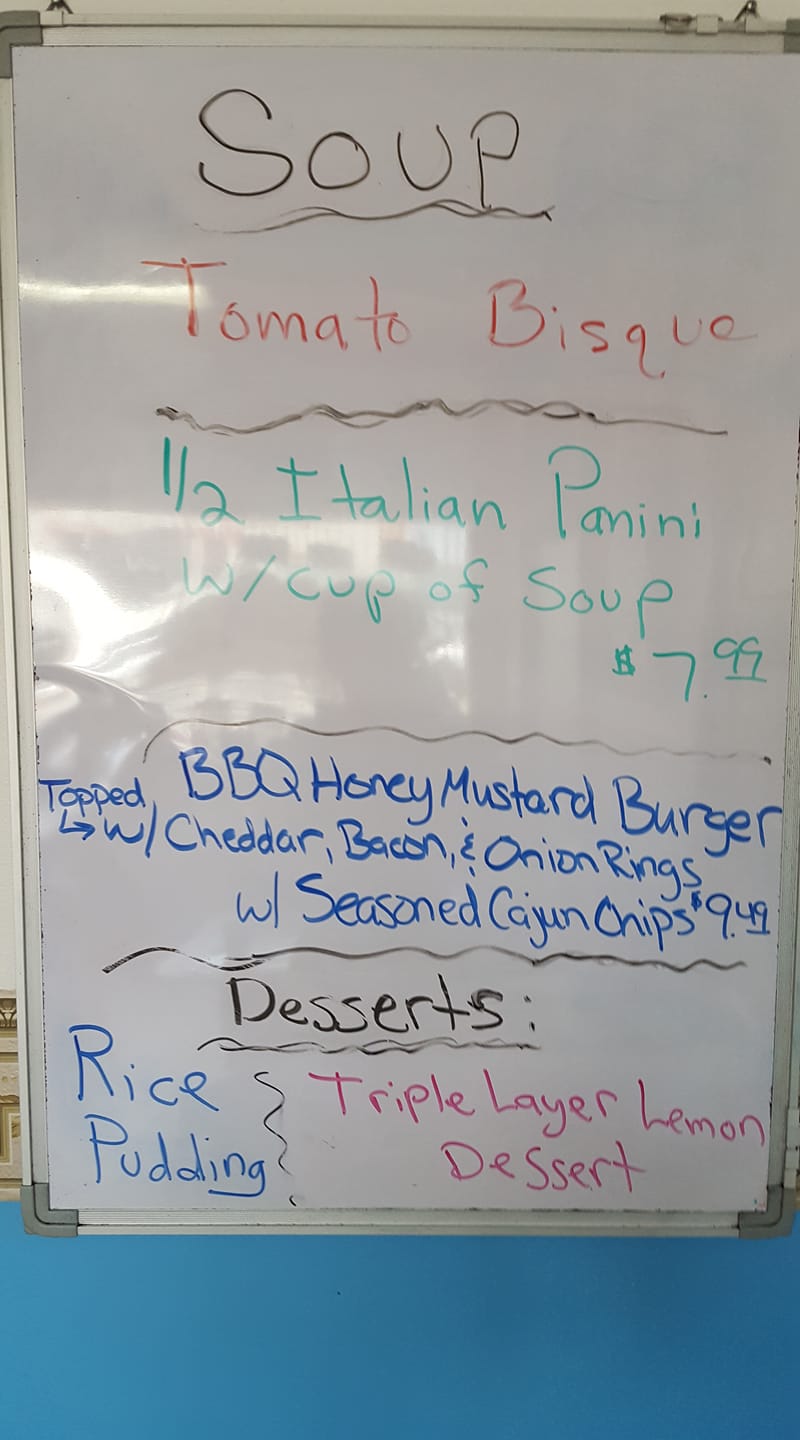 Soup
Tomato Bisque
1/2 Italian Panini
w/cup of Soup
$7.99
BBQ Honey Mustard Burger
Topped
↳ w/ Cheddar, Bacon, & Onion Rings
w/ Seasoned Cajun Chips $9.49
Desserts:
Rice
Pudding
Triple Layer Lemon
Dessert